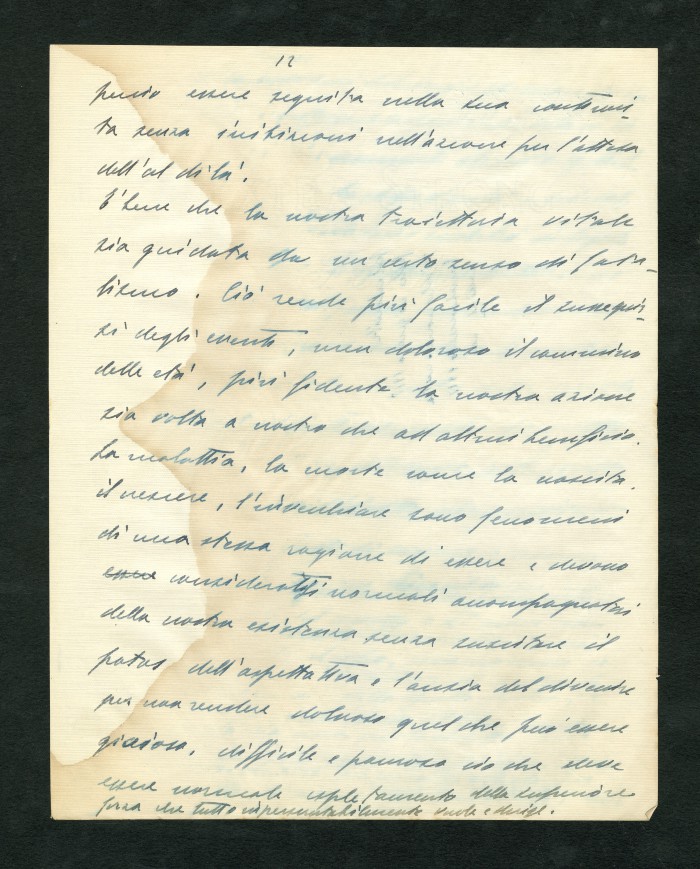 12
perciò essere seguita nella sua continui-
tà senza inibizioni nell'azione per l'attesa
dell'al di là.
È bene che la nostra traiettoria vitale
sia guidata da un certo senso di fata-
lismo. Ciò rende più facile il susseguir-
si degli eventi, men doloroso il cammino
delle età, più fidente la nostra azione
sia volta a nostro che ad altrui beneficio.
La malattia, la morte come la nascita,
il crescere, l'invecchiare sono fenomeni
di una stessa ragione di essere e devono
essere considerarsi normali accompagnatori
della nostra esistenza senza suscitare il
patos dell'aspettativa e l'ansia del divenire
per non rendere doloroso quel che può essere
gioioso, difficile e pauroso ciò che deve
essere normale espletamento della superiore
forza che tutto imperscrutabilmente vuole e dirige.